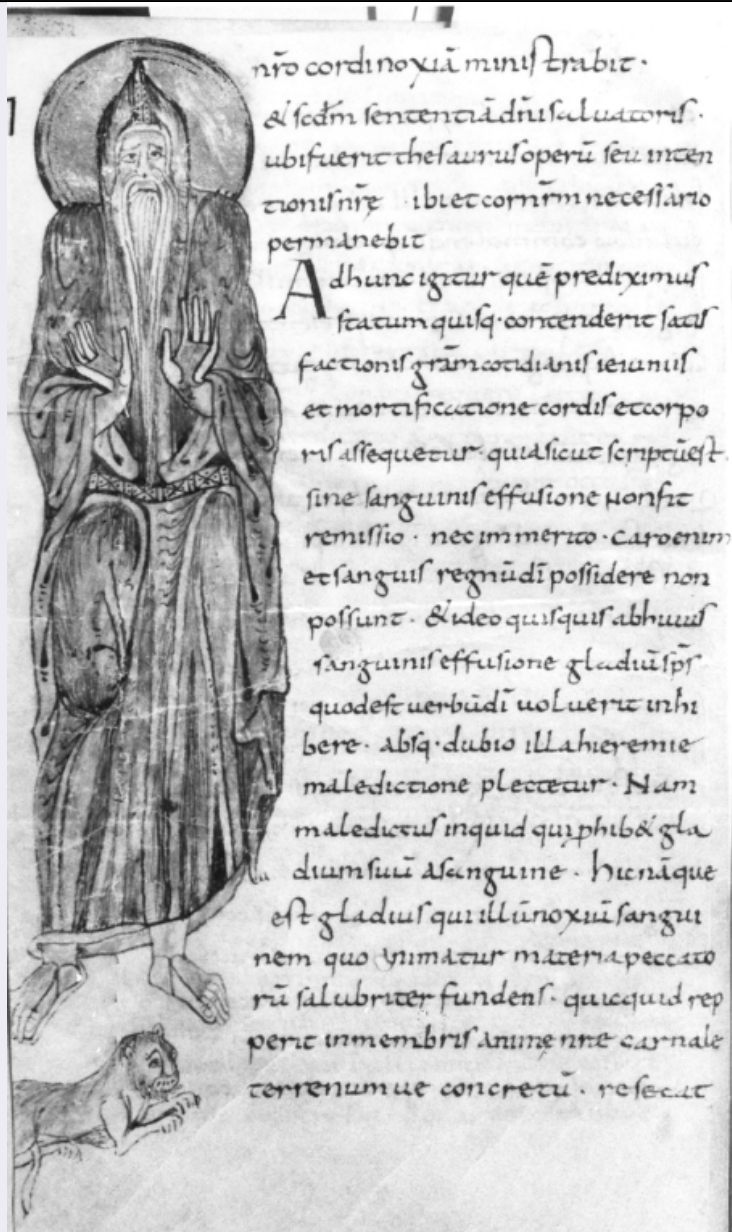 nr̄o cordi noxiā ministrabit ·
& scdm̄ sententiā dn̄i saluatoris ·
ubi fuerit thesaurus operū seu inten
tionis nr̄ę · ibi et cor nr̄m necessario
permanebit
Ad hunc igitur quē prediximus
statum quisq· contenderit satis
factionis gr̄am cotidianis ieiuniis
et mortificatione cordis et corpo
ris assequetur · quia sicut scriptū est ·
sine sanguinis effusione non fit
remissio · nec immerito · Caro enim
et sanguis regnū dī possidere non
possunt · & ideo quisquis ab huius
sanguinis effusione gladiū sp̄s
quod est uerbū dī uoluerit inhi
bere · absq· dubio illa hieremie
maledictione plectetur · Nam
maledictus inquid qui phib& gla
dium suū a sanguine · hic nāque
est gladius qui illū noxiū sangui
nem quo animatur materia peccato
rū salubriter fundens · quicquid rep
perit in membris animę nr̄e carnale
terrenum ue concretū · resecat